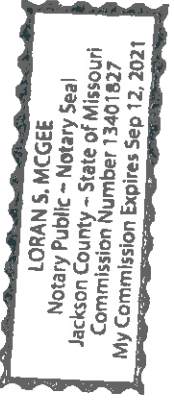 LORAN S. MCGEE
Notary Public ~ Notary Seal
Jackson County ~ State of Missouri
Commission Number 13401827
My Commission Expires Sep 12, 2021